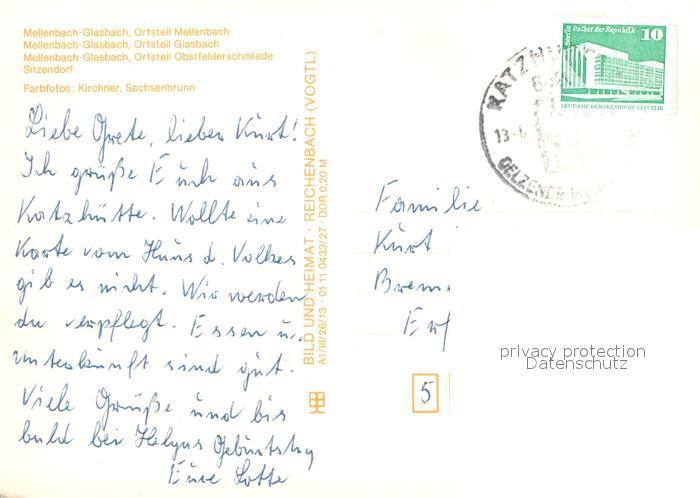 Mellenbach-Glasbach, Ortsteil Mellenbach
Mellenbach-Glasbach, Ortsteil Glasbach
Mellenbach-Glasbach, Ortsteil Obstfelderschmiede
Sitzendorf
Farbfotos: Kirchner, Sachsenbrunn
Liebe Grete, lieber Kurt!
Ich grüße Euch aus
Katzhütte. Wollte eine
Karte vom Haus d. Volkes
gib es nicht. Wir werden
da verpflegt. Essen u.
Unterkünft sind gut.
Viele Grüße und bis
bald bei Helgas Geburtstag
Eure Lotte
BILD UND HEIMAT · REICHENBACH (VOGTL)
A1/III/26/13 · 01 11 0433/27 · DDR 0,20 M
Berlin Palast der Republik 10
DEUTSCHE DEMOKRATISCHE REPUBLIK
KATZHÜ
13-6
OELZE
Familie
Kurt
Brem
Erf
5
privacy protection
Datenschutz